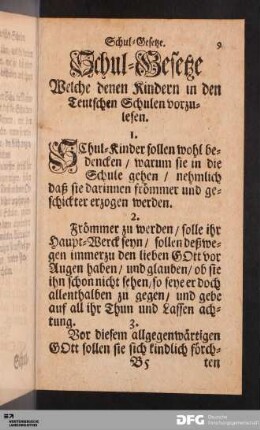 Schul-Gesetze. 9
Schul-Gesetze
Welche denen Kindern in den
Teutschen Schulen vorzu-
lesen.
1.
SChul-Kinder sollen wohl be-
dencken / warum sie in die
Schule gehen / nehmlich
daß sie darinnen frömmer und ge-
schickter erzogen werden.
2.
Frömmer zu werden / solle ihr
Haupt-Werck seyn / sollen deßwe-
gen immerzu den lieben GOtt vor
Augen haben / und glauben / ob sie
ihn schon nicht sehen / so seye er doch
allenthalben zu gegen / und gebe
auf all ihr Thun und Lassen ach-
tung.
3.
Vor diesem allgegenwärtigen
GOtt sollen sie sich kindlich förch-
B5 ten
DFG Deutsche
Forschungsgemeinschaft